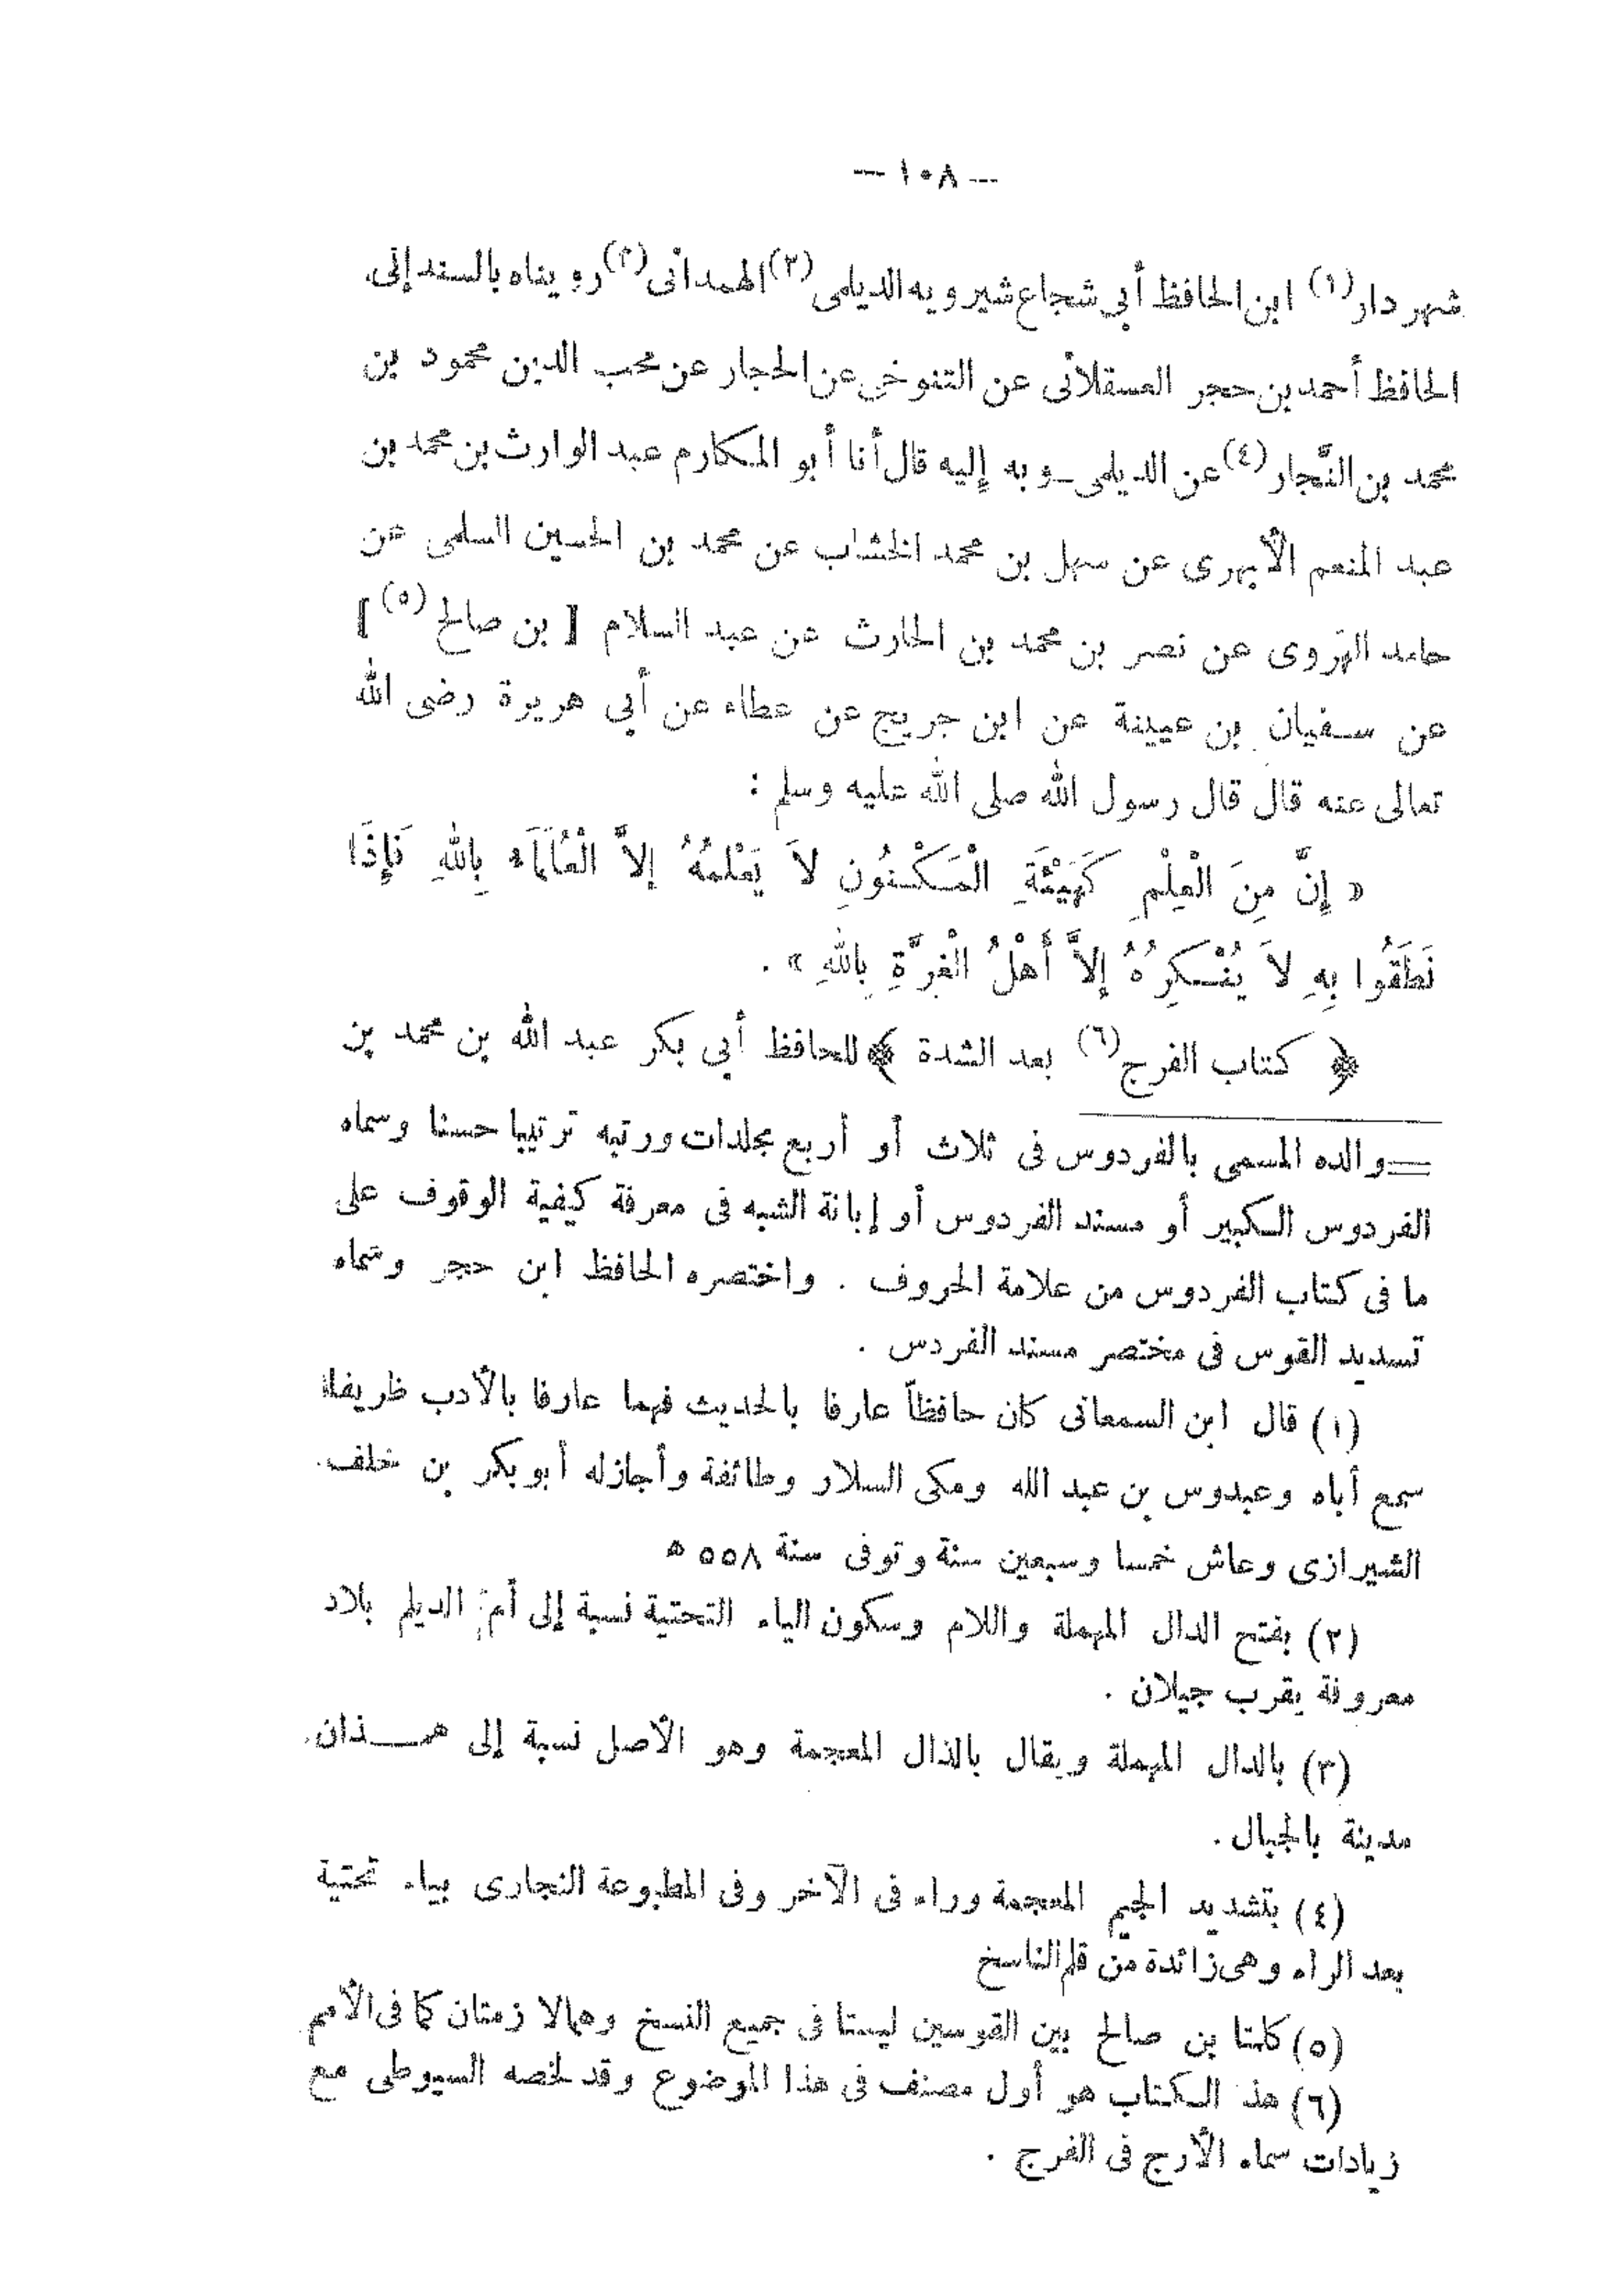 --- ١٠٨ ---
شهر دار(١) ابن الحافظ أبي شجاع شيرويه الديلمى(٢) الهمدانى(٣) رويناه بالسند إلى
الحافظ أحمد بن حجر العسقلانى عن التنوخى عن الحجار عن محب الدين محمود بن
محمد بن النَّجار(٤) عن الديلمى – وبه إليه قال أنا أبو المكارم عبد الوارث بن محمد بن
عبد المنعم الأبهرى عن سهل بن محمد الخشاب عن محمد بن الحسين السلمى عن
حامد الهَروى عن نصر بن محمد بن الحارث عن عبد السلام [ بن صالح(٥) ]
عن سفيان بن عيينة عن ابن جريج عن عطاء عن أبي هريرة رضى الله
تعالى عنه قال قال رسول الله صلى الله عليه وسلم :
« إِنَّ مِنَ الْعِلْمِ كَهَيْئَةِ الْمَكْنُونِ لاَ يَعْلَمُهُ إِلاَّ الْعُلَمَاَءُ بِاللهِ فَإِذَا
نَطَقُوا بِهِ لاَ يُنْكِرُهُ إِلاَّ أَهْلُ الْغِرَّةِ بِاللهِ » .
﴿ كتاب الفرج(٦) بعد الشدة ﴾ للحافظ أبي بكر عبد الله بن محمد بن
=والده المسمى بالفردوس فى ثلاث أو أربع مجلدات ورتبه ترتيبا حسنا وسماه
الفردوس الكبير أو مسند الفردوس أو إبانة الشبه فى معرفة كيفية الوقوف على
ما فى كتاب الفردوس من علامة الحروف . واختصره الحافظ ابن حجر وسماه
تسديد القوس فى مختصر مسند الفردس .
(١) قال ابن السمعانى كان حافظاً عارفا بالحديث فهما عارفا بالأدب ظريفا
سمع أباه وعبدوس بن عبد الله ومكى السلار وطائفة وأجازله أبو بكر بن خلف
الشيرازى وعاش خمسا وسبعين سنة وتوفى سنة ٥٥٨ ه
(٢) بفتح الدال المهملة واللام وسكون الياء التحتية نسبة إلى أم الديلم بلاد
معروفة بقرب جيلان .
(٣) بالدال المهملة ويقال بالذال المعجمة وهو الأصل نسبة إلى همـذان
مدينة بالجبال .
(٤) بتشديد الجيم المعجمة وراء فى الآخر وفى المطبوعة النجارى بياء تحتية
بعد الراء وهى زائدة من قلم الناسخ
(٥) كلمتا بن صالح بين القوسين ليستا فى جميع النسخ وهمالا زمتان كما فى الأمم
(٦) هذ الكتاب هو أول مصنف فى هذا الموضوع وقد لخصه السيوطى مع
زيادات سماه الأرج فى الفرج .